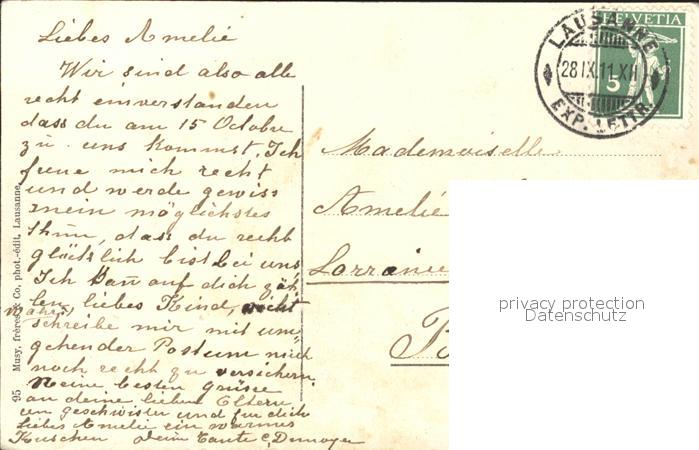 Liebes Amelié
Wir sind also alle
recht einverstanden
dass du am 15 Octobre
zu uns kommst. Ich
freue mich recht
und werde gewiss
mein möglichstes
thun, dass du recht
glücklich bist bei uns
Ich kan auf dich zäh-
len, liebes Kind, nicht
wahr?
schreibe mir mit um-
gehender Post um mich
noch recht zu versichern.
Meine besten grüsse
an deine lieben Eltern
un geschwister und für dich
liebes Amelie ein warmes
Kuschen Deine Tante C. Dumoyer
95 Musy, frères & Co, phot.-édit. Lausanne
HELVETIA
5
LAUSANNE
28 IX.11.XII
EXP. LETTR.
Mademoiselle
Amelié
Lorraine
B
privacy protection
Datenschutz